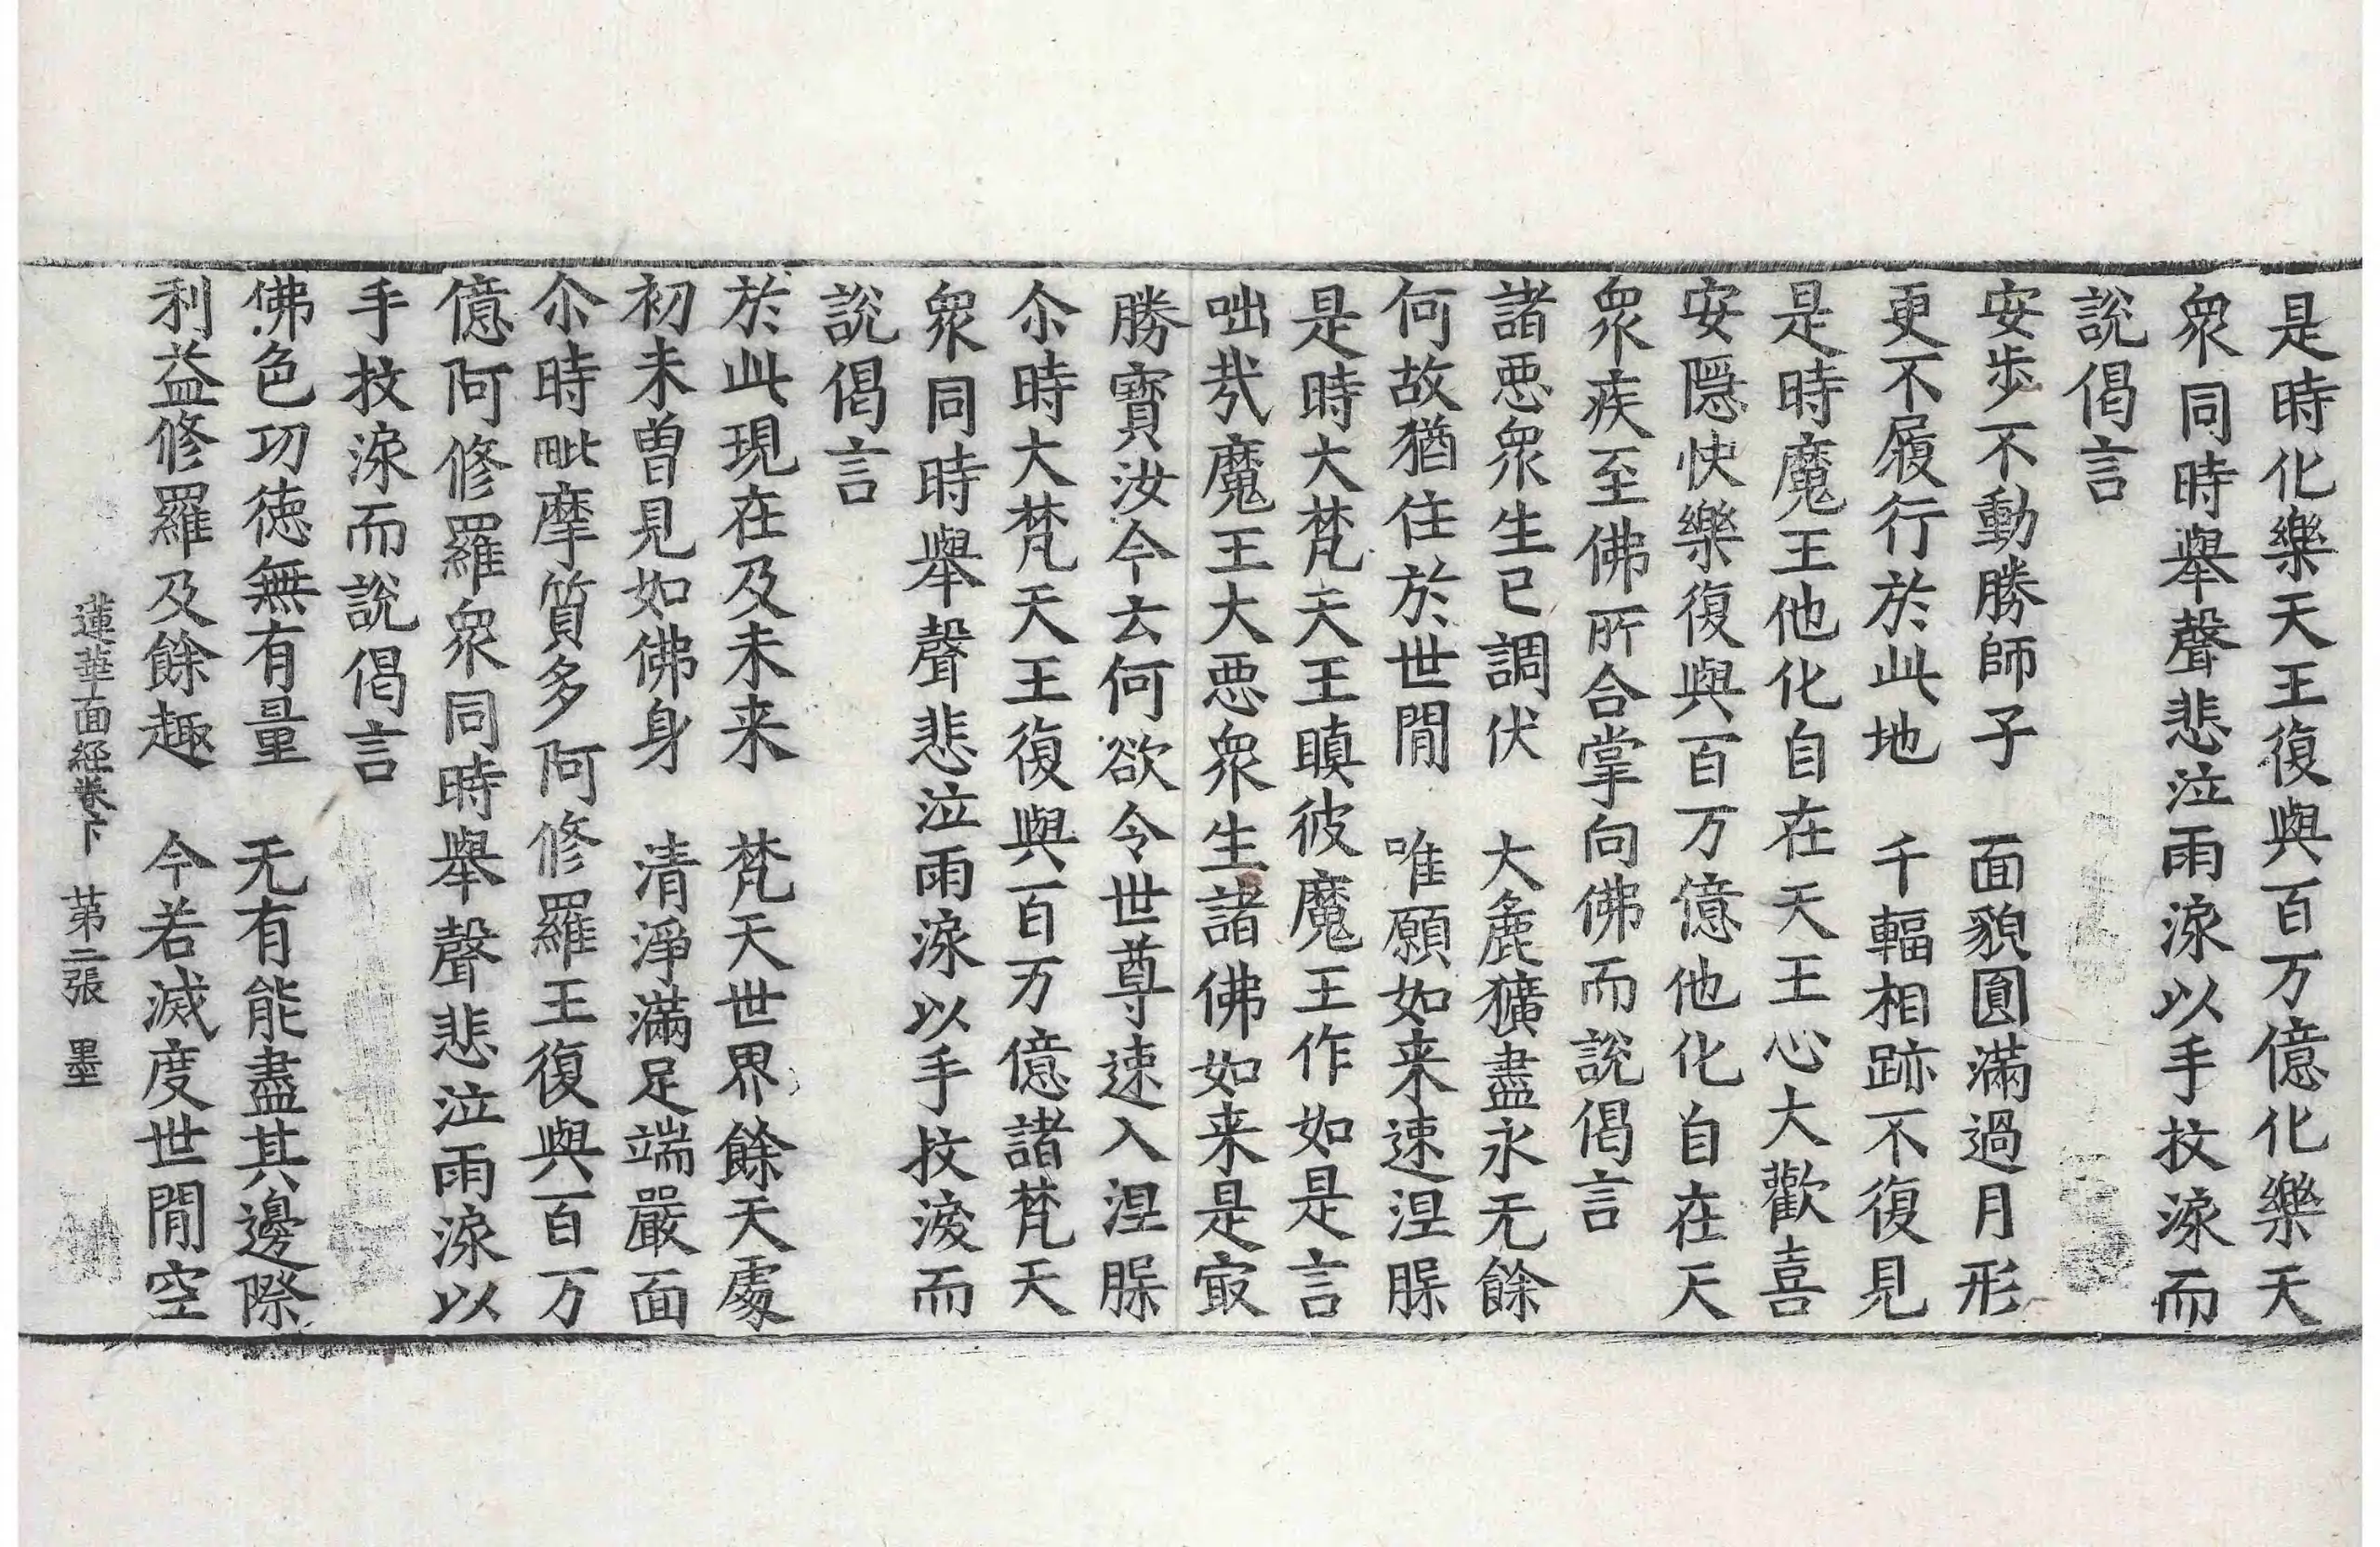 是時化樂天王復與百万億化樂天
衆同時舉聲悲泣雨淚以手抆淚而
說偈言
安步不動勝師子　面貌圓滿過月形
更不履行於此地　千輻相跡不復見
是時魔王他化自在天王心大歡喜
安隱快樂復與百万億他化自在天
衆疾至佛所合掌向佛而說偈言
諸惡衆生已調伏　大麁獷盡永无餘
何故猶住於世間　唯願如来速涅槃
是時大梵天王瞋彼魔王作如是言
咄哉魔王大惡衆生諸佛如来是㝡
勝寳汝今云何欲令世尊速入涅槃
尒時大梵天王復與百万億諸梵天
衆同時舉聲悲泣雨淚以手抆淚而
說偈言
於此現在及未来　梵天世界餘天處
初未曽見如佛身　清淨滿足端嚴面
尒時毗摩質多阿修羅王復與百万
億阿修羅衆同時舉聲悲泣雨淚以
手抆淚而說偈言
佛色功德無有量　无有能盡其邊際
利益修羅及餘趣　今若滅度世間空
蓮華面經卷下　苐二張　墨